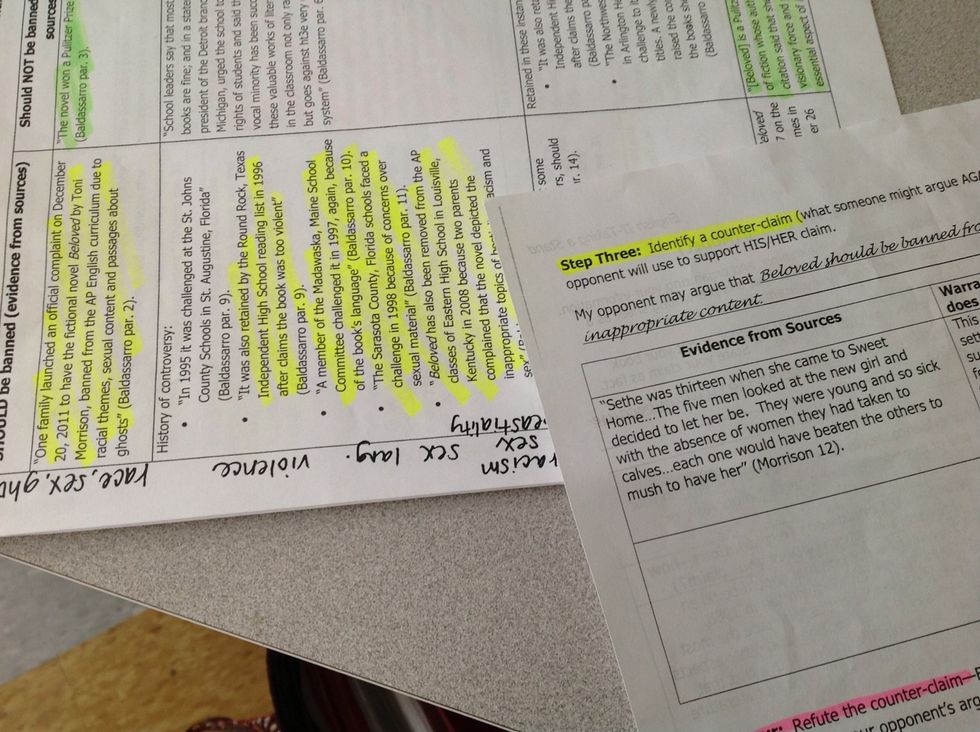 SHOULD be banned (evidence from sources)
"One family launched an official complaint on December
20, 2011 to have the fictional novel Beloved by Toni
Morrison, banned from the AP English curriculum due to
racial themes, sexual content and passages about
ghosts" (Baldassarro par. 2).
History of controversy:
• "In 1995 it was challenged at the St. Johns
County Schools in St. Augustine, Florida"
(Baldassarro par. 9).
• "It was also retained by the Round Rock, Texas
Independent High School reading list in 1996
after claims the book was too violent"
(Baldassarro par. 9).
• "A member of the Madawaska, Maine School
Committee challenged it in 1997, again, because
of the book's language" (Baldassarro par. 10).
• "The Sarasota County, Florida schools faced a
challenge in 1998 because of concerns over
sexual material" (Baldassarro par. 11).
• "Beloved has also been removed from the AP
classes of Eastern High School in Louisville,
Kentucky in 2008 because two parents
complained that the novel depicted the
inappropriate topics of racism and
race, sex, gh
violence
lang.
sex
racism
sex
Should NOT be banned
sources
"The novel won a Pulitzer Prize
(Baldassarro par. 3).
"School leaders say that most
books are fine; and in a state
president of the Detroit branc
Michigan, urged the school to
rights of students and said th
vocal minority has been succ
these valuable works of liter
in the classroom not only ra
but goes against hi3e very
system" (Baldassarro par. 6
Retained in these instan
• "It was also reta
Independent Hi
after claims the
(Baldassarro pa
• "The Northwes
in Arlington He
challenge to it
titles. A newly
raised the con
the books she
(Baldassarro
"[Beloved] is a Pulitz
of fiction whose auth
citation said that sh
visionary force and
essential aspect of
some
rs, should
ar. 14).
eloved
7 on the
mes in
er 26
Step Three: Identify a counter-claim (what someone might argue AGA
opponent will use to support HIS/HER claim.
My opponent may argue that Beloved should be banned fro
inappropriate content.
Evidence from Sources
"Sethe was thirteen when she came to Sweet
Home...The five men looked at the new girl and
decided to let her be. They were young and so sick
with the absence of women they had taken to
calves...each one would have beaten the others to
mush to have her" (Morrison 12).
Warra
does
This
set
su
Refute the counter-claim—
our opponent's arg